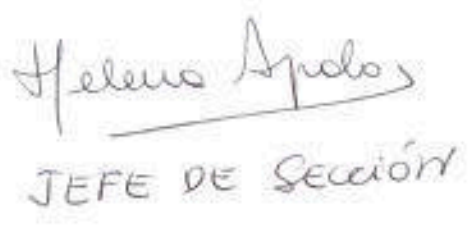 Helena Apolo
JEFE DE SECCIÓN